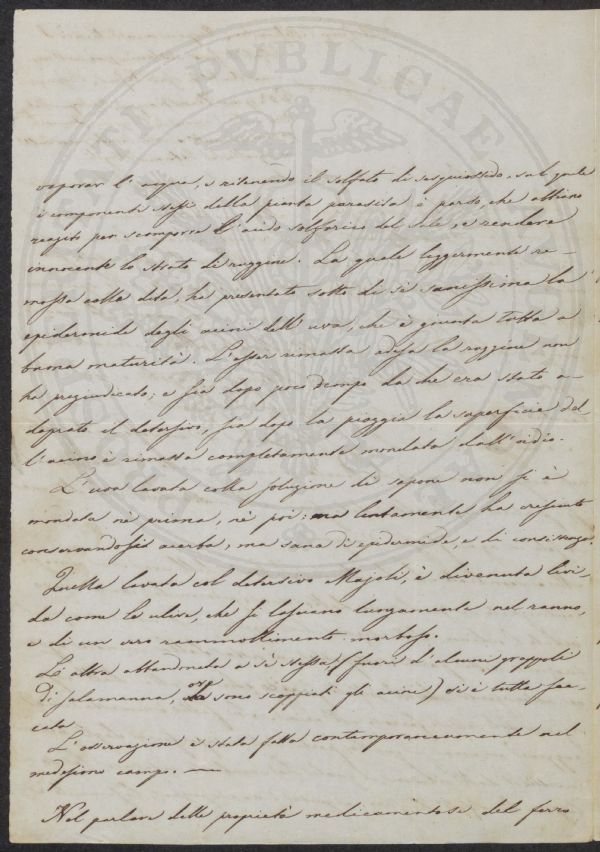 PROSPERITATI PVBLICAE AVGENDAE
vaporar l'acqua, o ritenendo il solfato di sesquiossido, sul quale
i componenti stessi della pianta parasita è parso, che abbiano
reagito per scomporre l'acido solforico del sale, e rendere
innocente lo strato di ruggine. La quale leggermente re-
mossa colle dita, ha presentato sotto di sè sanissima la
epidermide degli acini dell'uva, che è giunta tutta a
buona maturità. L'esser rimasta adesa la ruggine non
ha pregiudicato; e sia dopo poco tempo da che era stato a-
doprato il detersivo, sia dopo la pioggia la superficie del-
l'acino è rimasta completamente mondata dall'oidio.
L'uva lavata colla soluzione di sapone non si è
mondata nè prima, nè poi: ma lentamente ha cresciuto
conservandosi acerba, ma sana di epidermide, e di consistenza.
Quella lavata col detersivo Majoli, è divenuta livi-
da come le ulive, che si lasciano lungamente nel ranno,
e di un vero rammollimento morboso.
L'altra abbandonata a sè stessa (fuori d'alcuni grappoli
di salamanna, ove sono scoppiati gli acini) si è tutta sec-
cata
L'osservazione è stata fatta contemporaneamente nel
medesimo campo. —
Nel parlare delle proprietà medicamentose del ferro